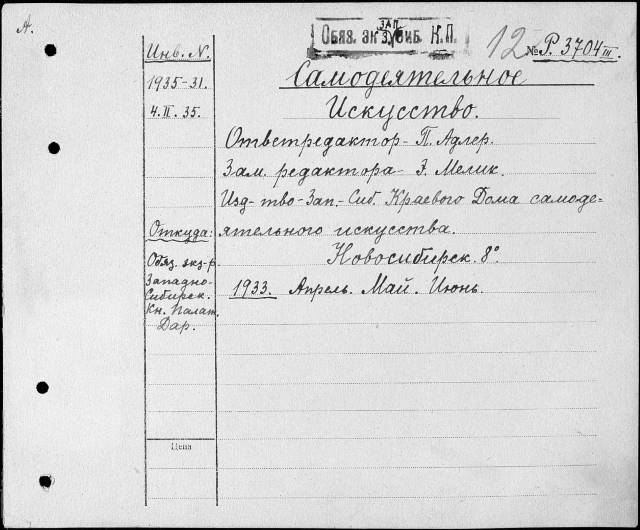 А.
Обяз. эк. Зап. Сиб. К.П.
12 № Р. 3704 III.
Инв. N.
1935-31.
4.II.35.
Самодеятельное
Искусство.
Ответредактор - П. Адлер.
Зам. редактора - Э. Мелик.
Изд-тво - Зап.-Сиб. Краевого Дома самоде=
ятельного искусства.
Новосибирск. 8°.
1933. Апрель. Май. Июнь.
Откуда:
Обяз. экз-р.
Западно-
Сибирск.
Кн. Палат.
Дар.
Цена